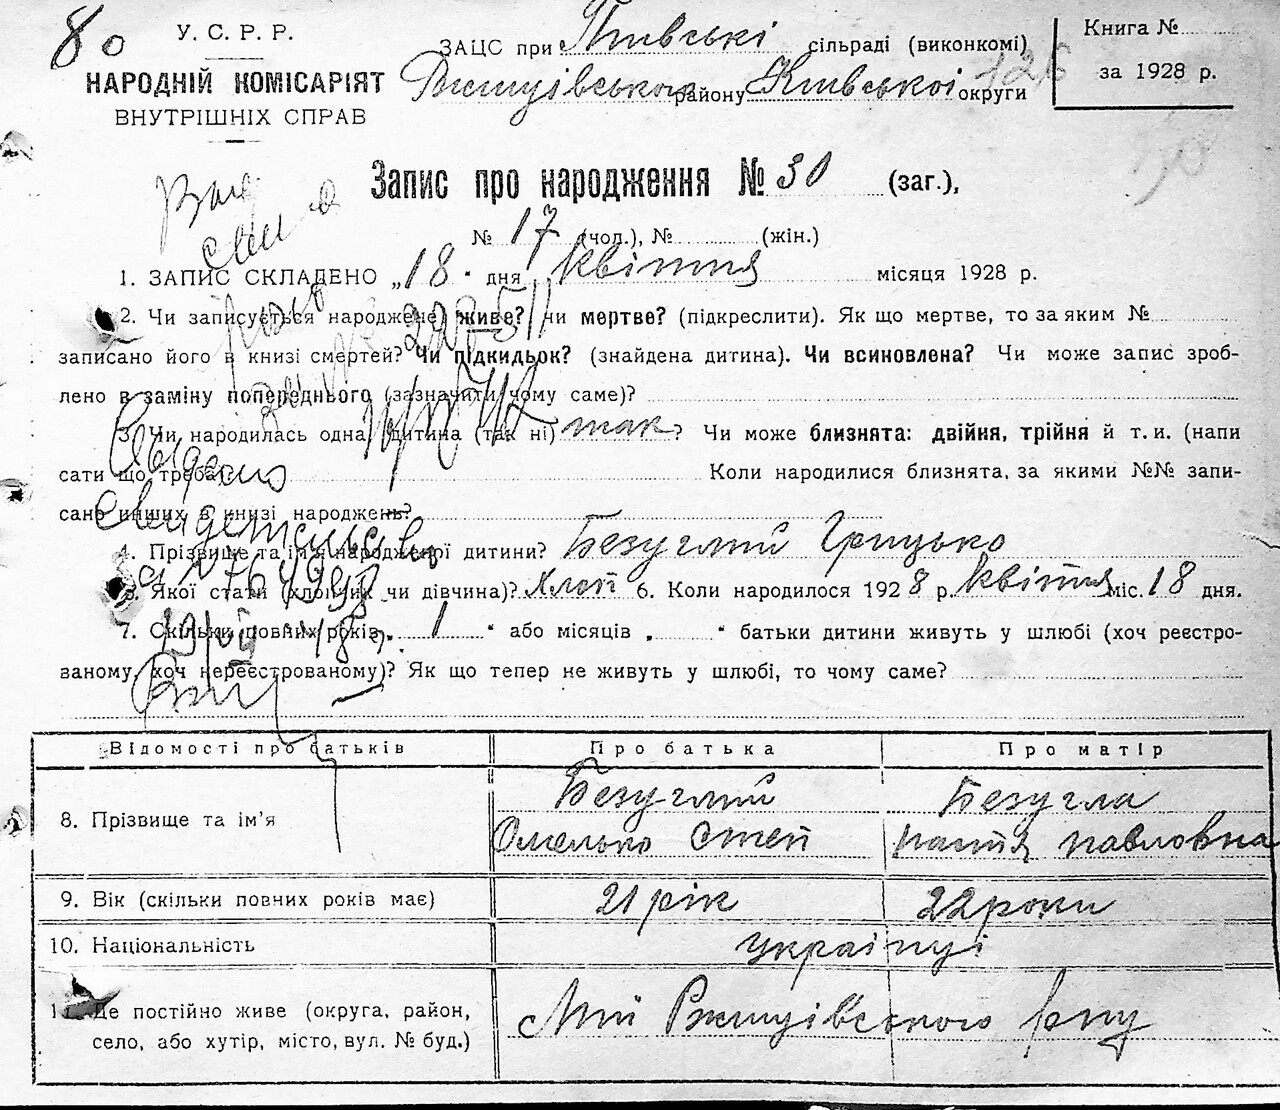 80
У. С. Р. Р.
НАРОДНІЙ КОМІСАРІЯТ
ВНУТРІШНІХ СПРАВ
ЗАЦС при сільраді (виконкомі)
району Київської округи
126
Книга №
за 1928 р.
Запис про народження № 30 (заг.),
№ 17 (чол.), № (жін.)
1. ЗАПИС СКЛАДЕНО „18" дня квітня місяця 1928 р.
2. Чи записується народжене живе? чи мертве? (підкреслити). Як що мертве, то за яким №
записано його в книзі смертей? Чи підкидьок? (знайдена дитина). Чи всиновлена? Чи може запис зроб-
лено в заміну попереднього (зазначити чому саме)?
3. Чи народилась одна дитина (так ні) так? Чи може близнята: двійня, трійня й т. и. (напи
сати що треба). Коли народилися близнята, за якими №№ запи-
сано инших в книзі народжень?
4. Прізвище та ім'я народженої дитини? Безуглий Грицько
5. Якої стати (хлопчик чи дівчина)? Хлоп 6. Коли народилося 1928 р. квітня міс. 18 дня.
7. Скільки повних років „1" або місяців „ " батьки дитини живуть у шлюбі (хоч реєстро-
ваному, хоч нереєстрованому)? Як що тепер не живуть у шлюбі, то чому саме?
Відомості про батьків Про батька Про матір
8. Прізвище та ім'я
Безуглий Безугла
Омелько Степ Настя Павловна
9. Вік (скільки повних років має) 21 рік 22 роки
10. Національність українці
11. Де постійно живе (округа, район,
село, або хутір, місто, вул. № буд.)
Ржищівського